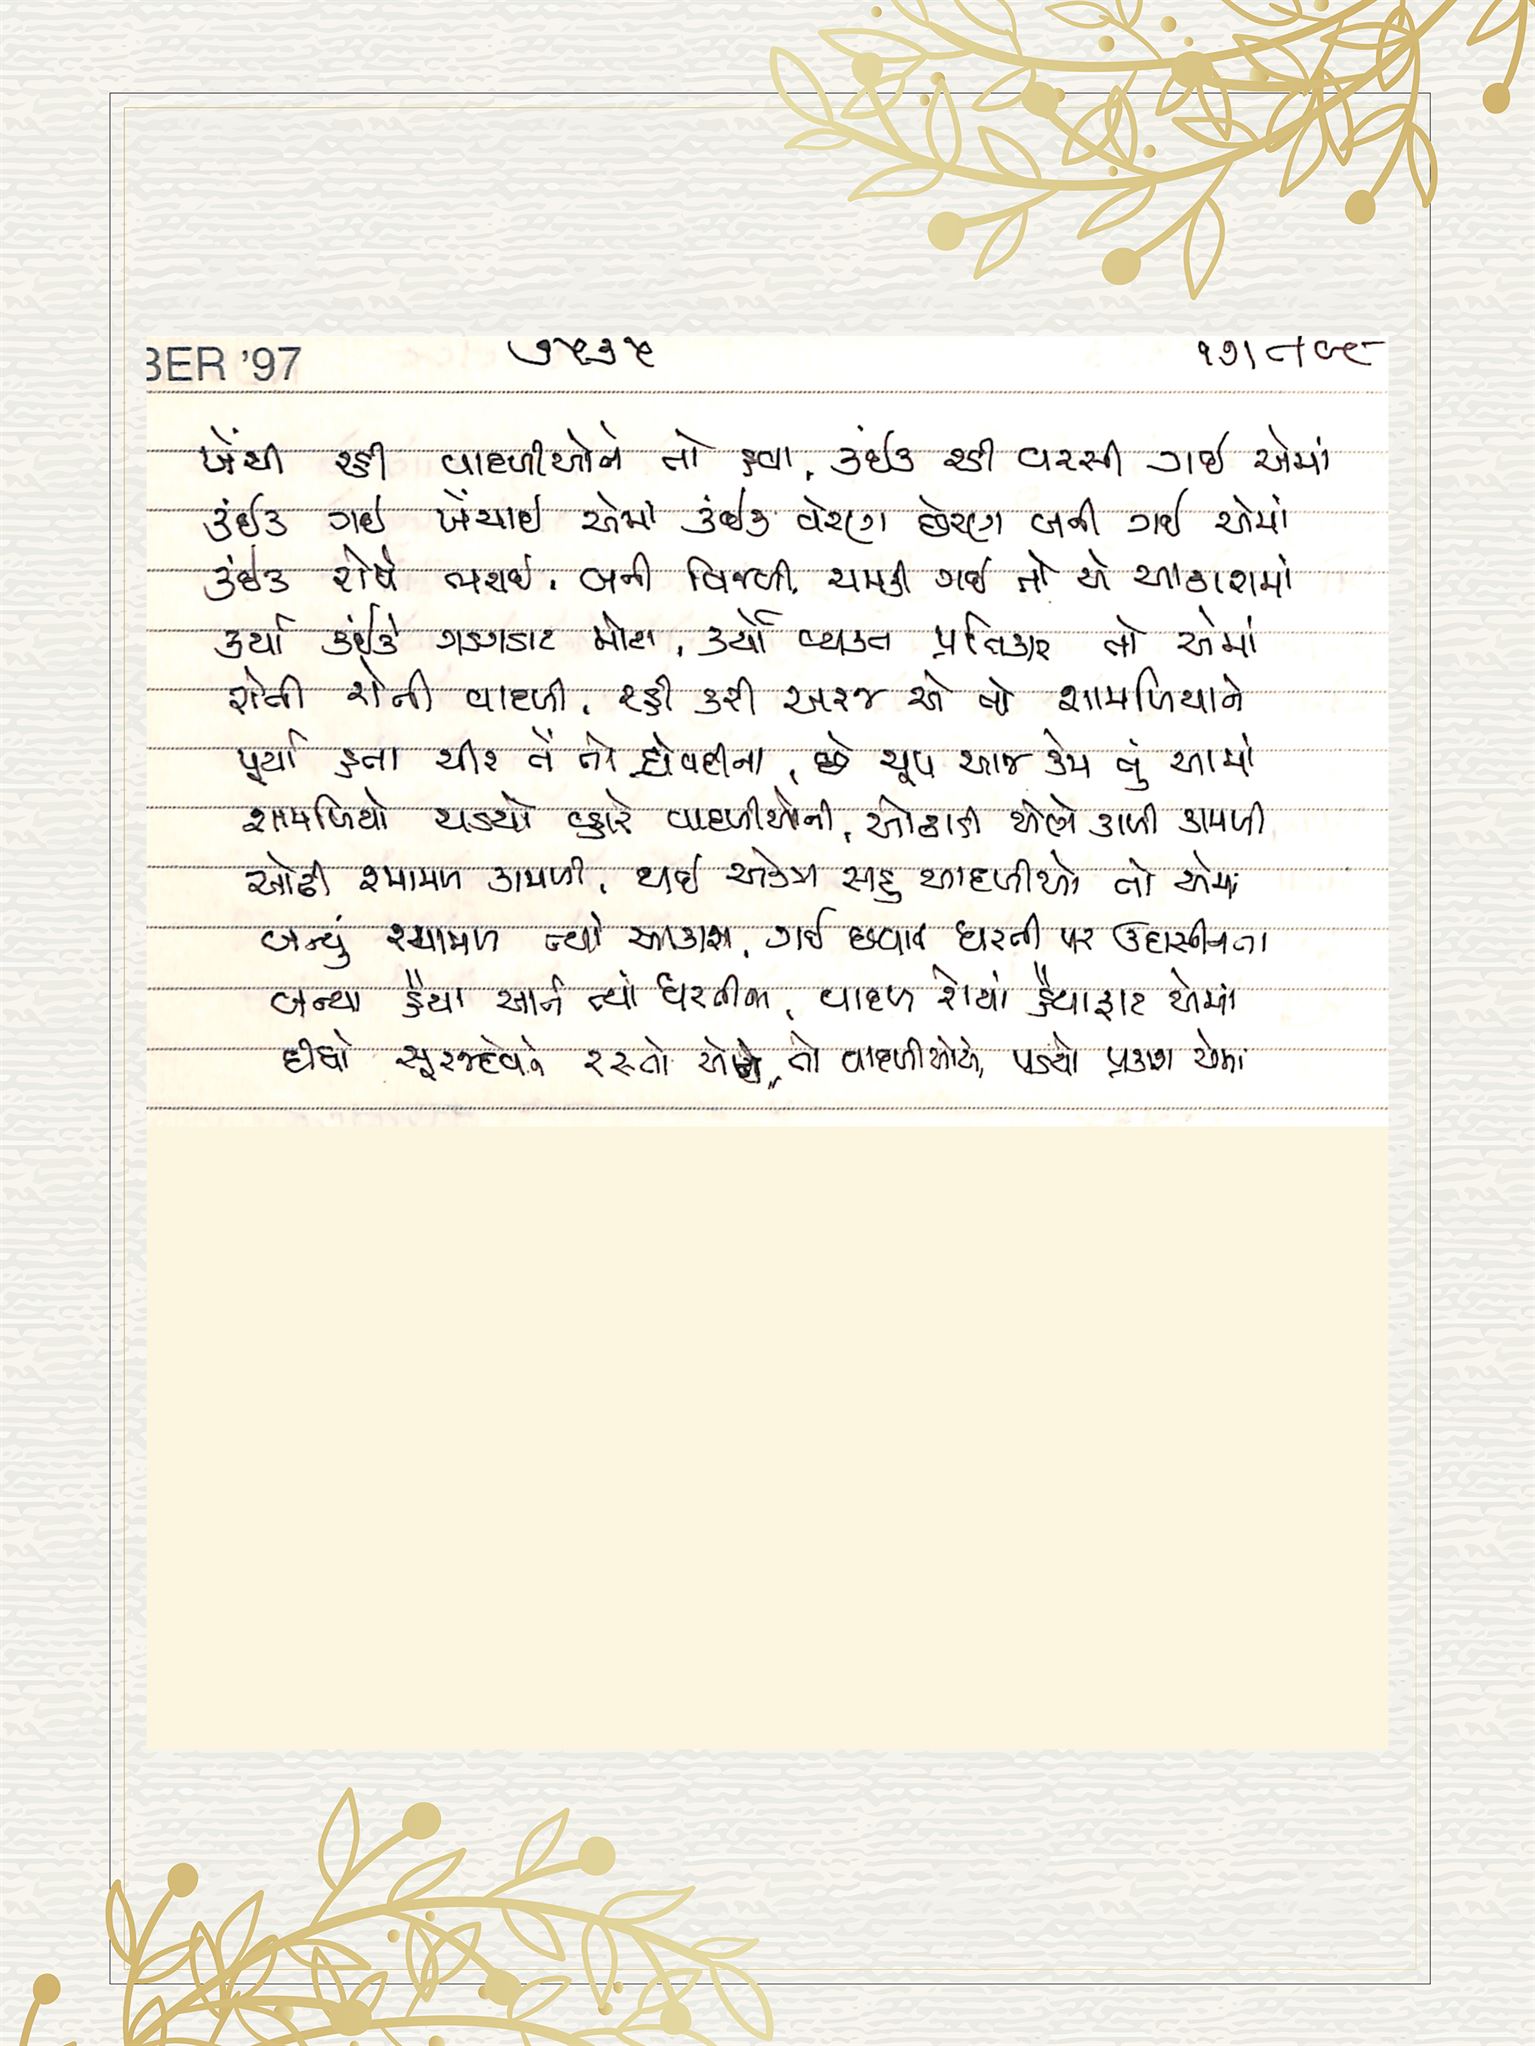 BER '97 ૭૬૩૬
ખેંચી રહી વાદળીઓને તો હવા, કંઈક રહી વરસી ગઈ એમાં
કંઈક ગઈ ખેંચાઈ એમાં કંઈક વેરણ છેરણ બની ગઈ એમાં
કંઈક રોષે ભરાઈ, બની વિજળી, ચમકી ગઈ તો એ આકાશમાં
કર્યા કંઈકે ગડગડાટ મોટા, કર્યો વ્યક્ત પ્રતિકાર તો એમાં
રોતી રોતી વાદળી, રહી કરી અરજ એ તો શામળિયાને
પૂર્યા હતા ચીર તેં તો દ્રૌપદીના, છે ચૂપ આજ કેમ તું આમાં
શામળિયો ચડયો વ્હારે વાદળીઓની, ઓઢાડી એણે કાળી કામળી
ઓઢી શ્યામળ કામળી, થઈ એકત્ર સહુ વાદળીઓ તો એમાં
બન્યું શ્યામળ ત્યાં આકાશ, ગઈ છવાઈ ધરતી પર ઉદાસીનતા
બન્યા હૈયા આર્ત ત્યાં ધરતીના, વાદળ રોયાં હૈયાફાટ એમાં
દીધો સૂરજદેવને રસ્તો તો વાદળીઓએ, પડયો પ્રકાશ એમાં